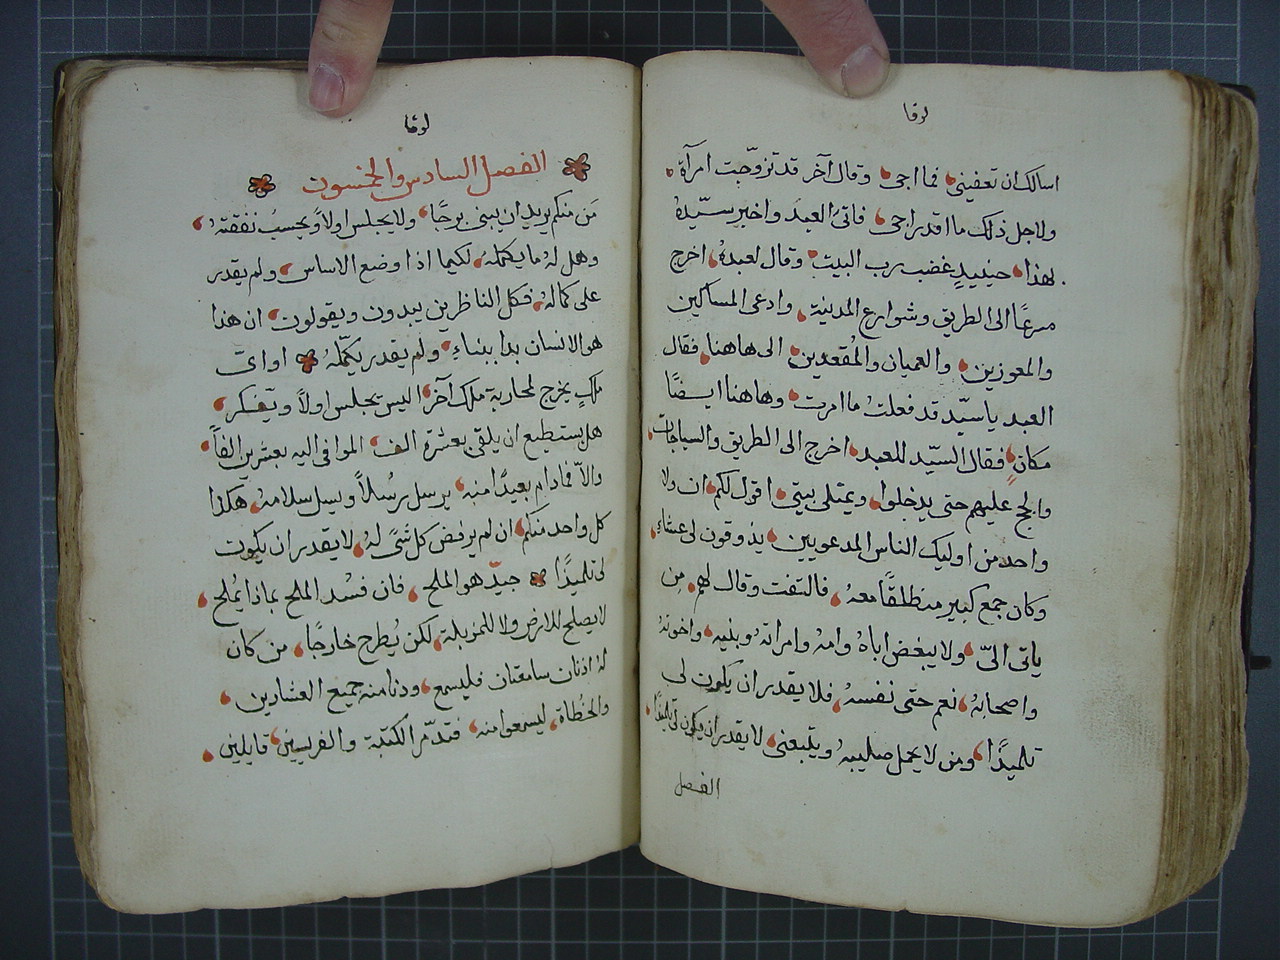 لوقا
اسالك ان تعفيني فما اجى وقال آخر قد تزوّجت امرآة
ولاجل ذلك ما اقدر اجى فاتى العبد واخبر سيّده
بهذا حينيدٍ غضب رب البيت وقال لعبده اخرج
مسرعًا الى الطريق وشوارع المدينة وادعى المساكين
والمعوزين والعميان والمُقعدين الى هاهنا فقال
العبد ياسيّد قد فعلتُ ما امرت وهاهنا ايضًا
مكان فقال السيّد للعبد اخرج الى الطريق والسياجات
والحّ عليهم حتى يدخلوا ويمتلى بيتي اقول لكم ان ولا
واحد من اوليك الناس المدعويين يذوقون لى عشاء
وكان جمع كبير منطلقًا معهُ فالتفت وقال لهم مِن
ياتى الىّ ولا يبغض اباهُ وامهُ وامراتهُ وبنيه واخوتهُ
واصحابهُ نعم حتى نفسهُ فلا يقدر ان يكون لى
تلميذًا ومن لا يحمل صليبه ويتبعنى لا يقدر ان يكون لى تلميذًا
الفصل
لوقا
الفصل السادس والخمسون
مَن منكم يريد ان يبنى برجًا ولا يجلس اولاً ويحسبُ نفقتهُ
وهل لهُ ما يكملهُ لكيما اذا وضع الاساس ولم يقدر
على كمالهُ فكل الناظرين يبدون ويقولون ان هذا
هو الانسان بدا ببناءِ ولم يقدر يكمّلهُ او اىّ
ملكٍ يخرج لمحاربة ملك آخر اليس يجلس اولاً ويتفكر
هل يستطيع ان يلقى بعشرة الف الموافى اليه بعشرين الفاً
والاّ فمادام بعيدًا منه يرسل رسُلاً ويسل سلامهُ هكذا
كل واحد منكم ان لم يرفض كل شَىً لهُ لا يقدر ان يكون
لى تلميذًا جيّد هو الملح فان فسُد الملح بماذا يُملح
لا يصلح للارض ولا للمزبلة لكن يُطرح خارجًا من كان
لهُ اذنان سامعتان فليسمع ودنا منه جميع العشارين
والخُطاة ليسمعوا منه فتدمّر الكتبة والفريسين قايلين